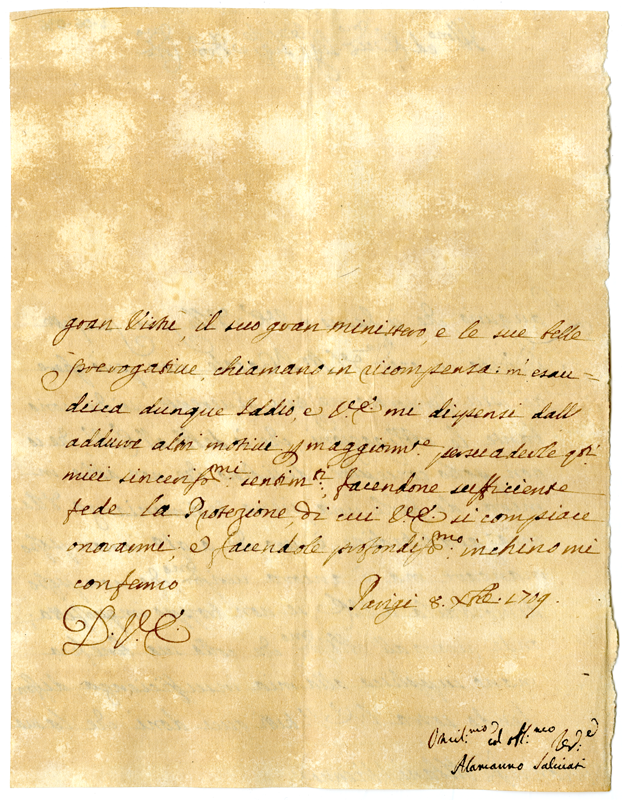 gran Virtù, il suo gran ministero, e le sue belle
prerogative, chiamano in ricompensa: m'esau-
disca dunque Iddio, e V.E. mi dispensi dall'
addurre altri motivi p maggiormte persuaderle qti
miei sincerissmi sentimti, facendone sufficiente
fede la Protezione, di cui V.E. si compiace
onorarmi, e facendole profondissmo inchino mi
confermo
Parigi 8. Xbre. 1709.
D. V. E.
Umil:mo ed Obl:mo Ser:e
Alamanno Salviati